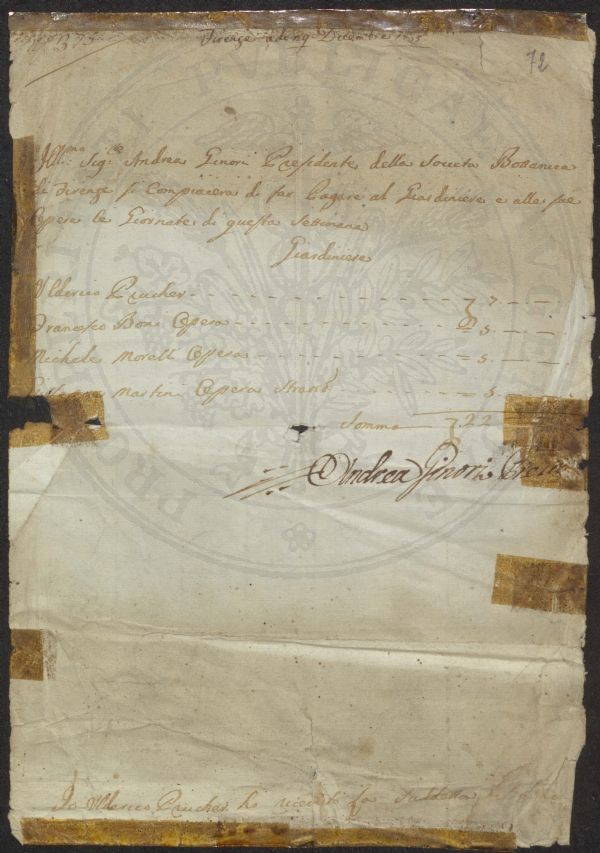 72
Firenze Decembre
Ill:mo Sig:re Andrea Ginori Presidente della Società Bottanica
di Firenze si Compiacerà di far Pagare al Giardiniere e alle sue
Opere le Giornate di questa Settimana
Giardiniere
Ulderico Prucher 7
Francesco Boni Opera 5
Michele Morelli Opera 5
Martini Opera 5
Somma 22
Andrea Ginori
Io Ulderico Prucher ho ricevuto la suddetta